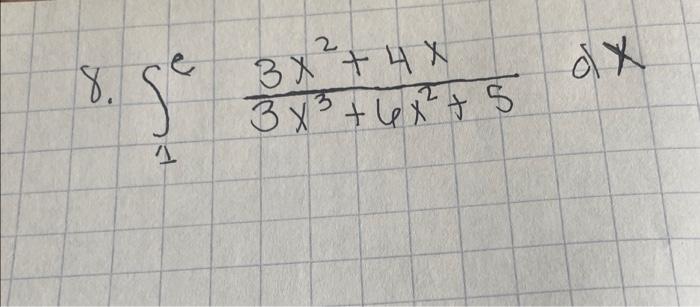 8. ∫₁ᵉ (3x² + 4x)/(3x³ + 6x² + 5) dx